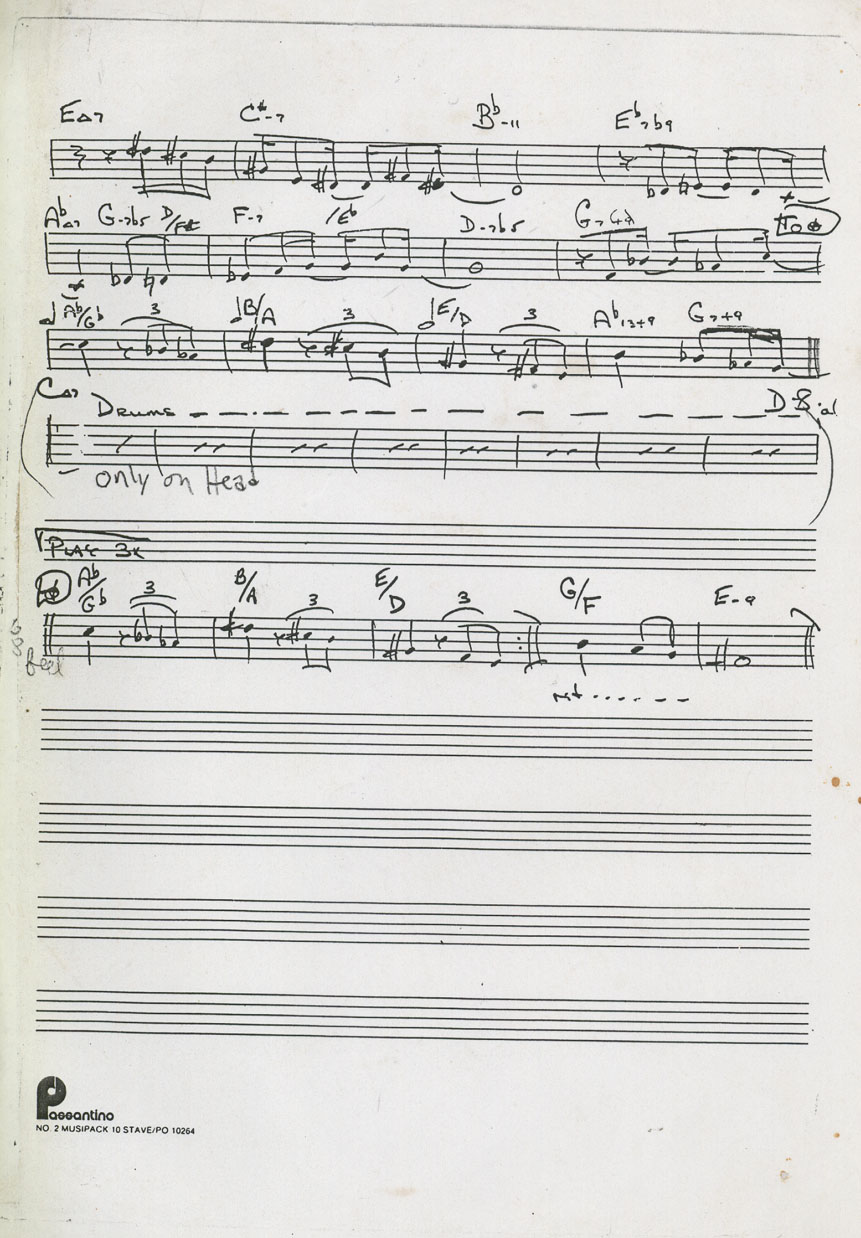 E△7 C#-7 B♭-11 E♭7♭9
A♭△7 G-7♭5 D/F# F-7 /E♭ D-7♭5 G7 To 𝄌
A♭/G♭ 3 B/A 3 E/D 3 A♭13+9 G7+9
C△7 Drums D.𝄋.al
only on Head
PLAY 3x
𝄌 A♭/G♭ 3 B/A 3 E/D 3 G/F E-9
feel
rit
Passantino
NO. 2 MUSIPACK 10 STAVE/PO 10264